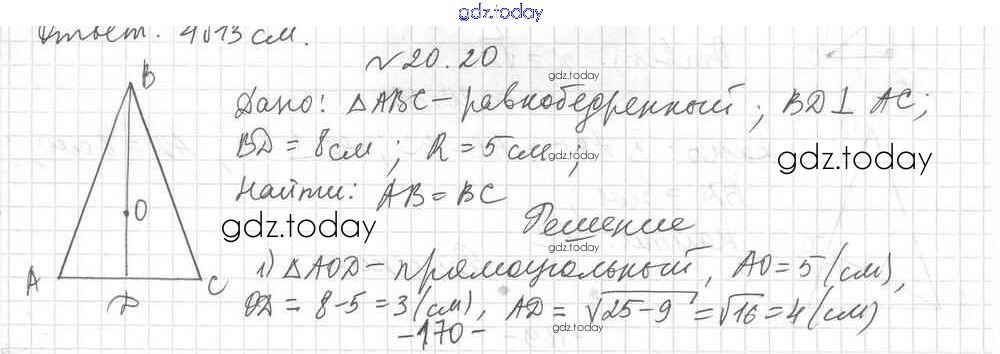 gdz.today
Ответ. 4√13 см.
№20.20
gdz.today
B
Дано: △ABC - равнобедренный; BD⊥AC;
BD = 8 см; R = 5 см;
gdz.today
gdz.today
Найти: AB = BC
gdz.today
O
gdz.today
Решение
gdz.today
A
C
D
1) △AOD - прямоугольный, AO = 5 (см),
OD = 8-5 = 3 (см), AD = √25-9 = √16 = 4 (см)
gdz.today
-170-